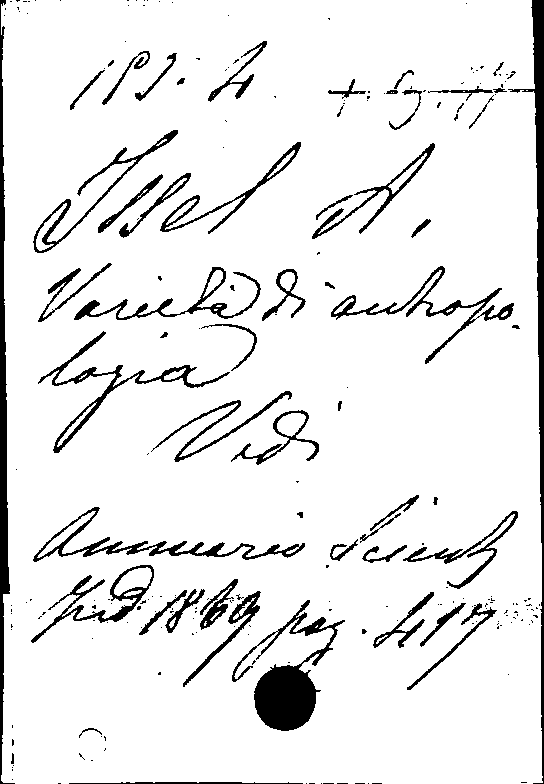 183. 4
Issel A.
Varietà di antropo-
logia
Vedi
Annuario Scient
Ind 1869 pag. 417